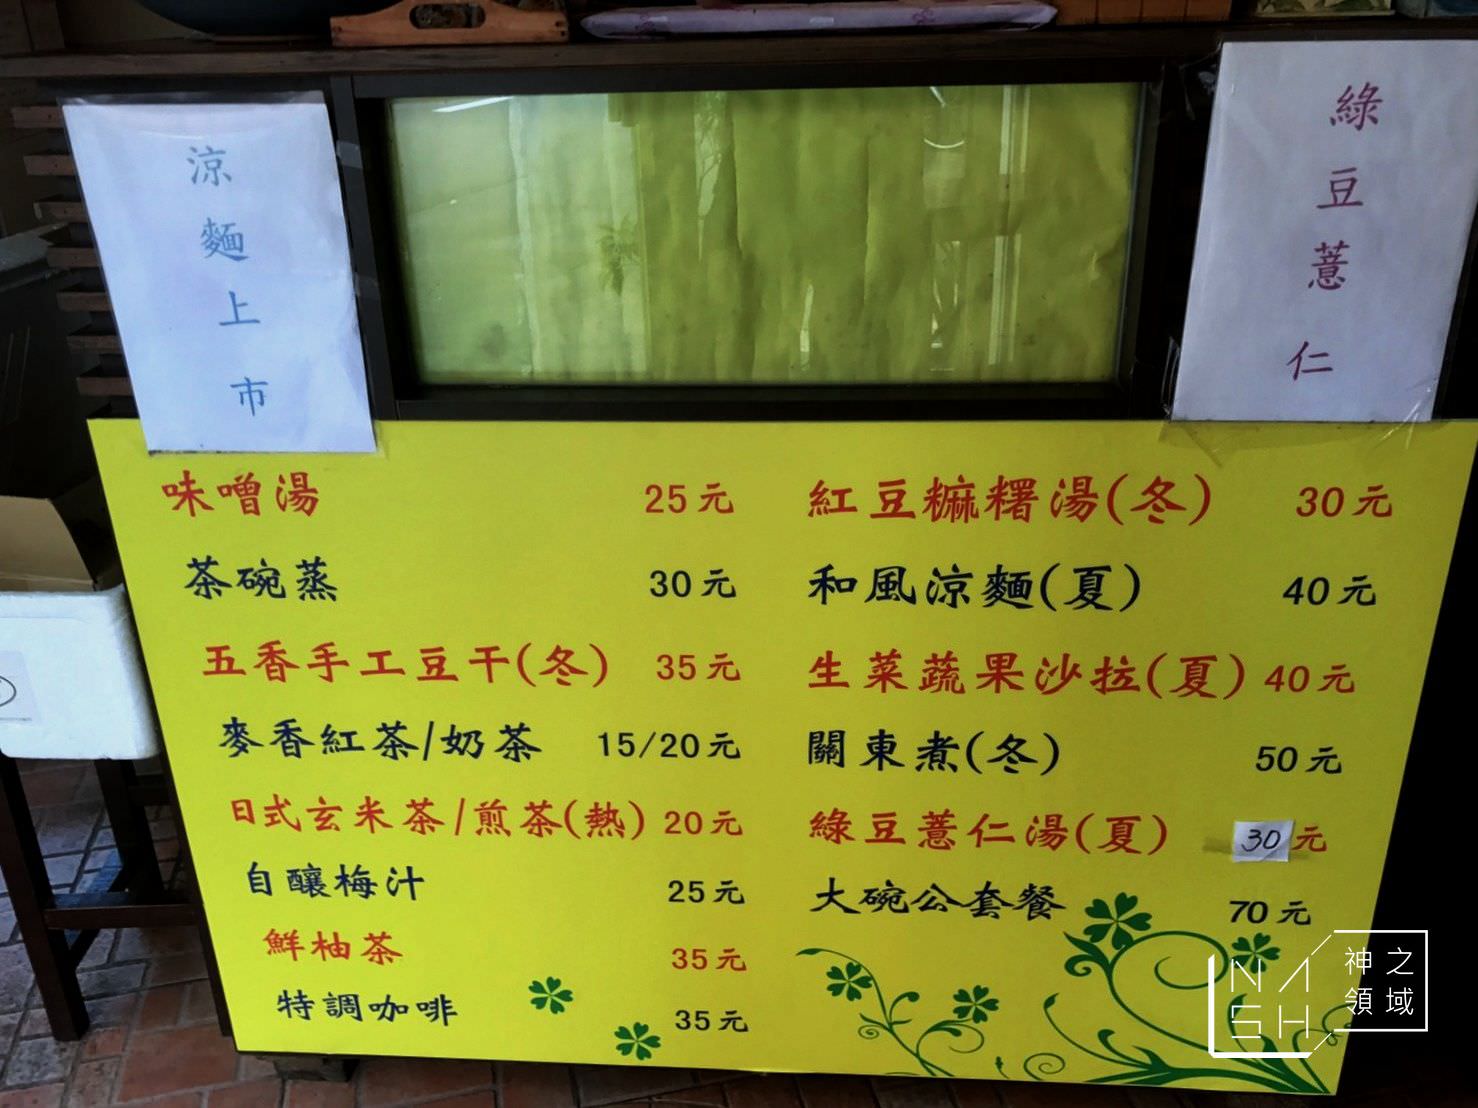 涼麵上市
綠豆薏仁
味噌湯 25元
茶碗蒸 30元
五香手工豆干(冬) 35元
麥香紅茶/奶茶 15/20元
日式玄米茶/煎茶(熱) 20元
自釀梅汁 25元
鮮柚茶 35元
特調咖啡 35元
紅豆糜糬湯(冬) 30元
和風涼麵(夏) 40元
生菜蔬果沙拉(夏) 40元
關東煮(冬) 50元
綠豆薏仁湯(夏) 30元
大碗公套餐 70元
NASH
神之領域